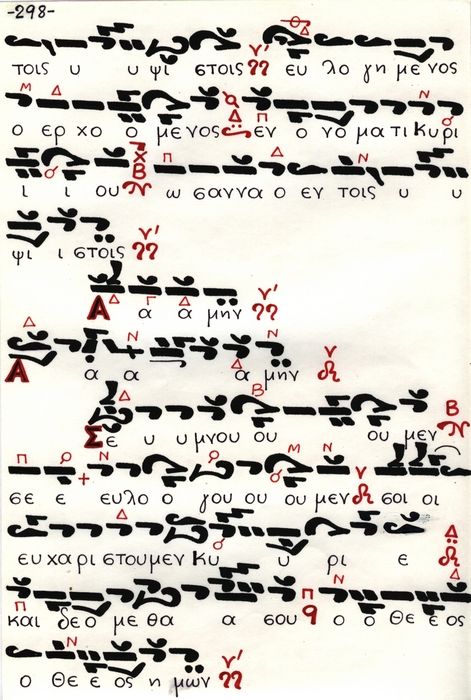 -298-
τοις υ υ ψι στοις ευ λο γη με νος
ο ερ χο ο μενος εν ο νο μα τι Κυ ρι
ι ι ου ω σαννα ο εν τοις υ υ
ψι ι στοις
Α α α μην
Α α α α μην
Σε υ υ μνου ου ου μεν
σε ε ευλο ο γου ου ου μεν σοι οι
ευ χα ρι στουμεν Κυ υ ρι ε
και δεο με θα α σου ο ο θε ε ος
ο θε ε ος η μων